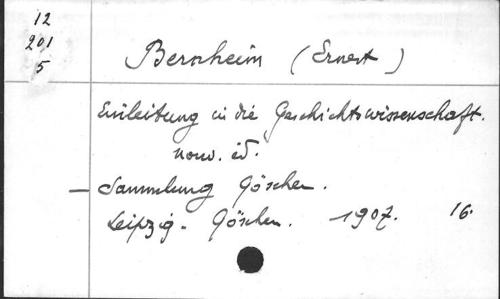 12
201
5
Bernheim (Ernest)
Einleitung in die Geschichtswissenschaft.
nouv. éd.
— Sammlung Göschen.
Leipzig - Göschen. 1907. 16.